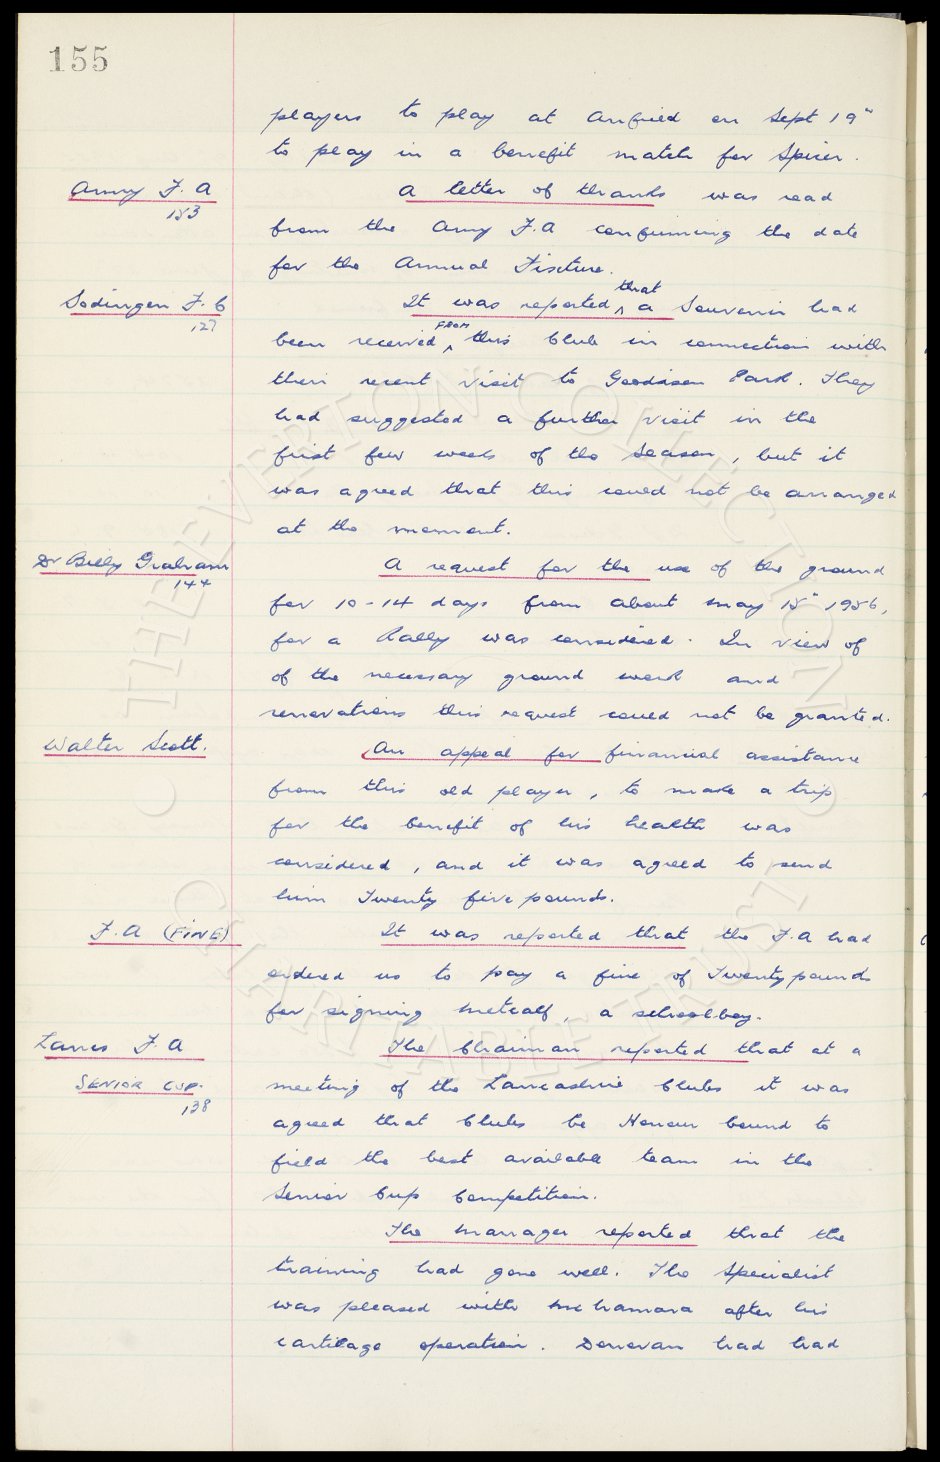 155
players to play at Anfield on Sept 19"
to play in a benefit match for Spicer.
Army F.A
153
A letter of thanks was read
from the Army F.A confirming the date
for the Annual Fixture.
Sodingen F.C
127
It was reported that a Souvenir had
been received FROM this Club in connection with
their recent visit to Goodison Park. They
had suggested a further visit in the
first few weeks of the Season, but it
was agreed that this could not be arranged
at the moment.
Dr Billy Graham
144
A request for the use of the ground
for 10-14 days from about May 15" 1956,
for a Rally was considered. In view of
of the necessary ground work and
renovations this request could not be granted.
Walter Scott.
An appeal for financial assistance
from this old player, to make a trip
for the benefit of his health was
considered, and it was agreed to send
him Twenty five pounds.
F.A (FINE)
It was reported that the F.A had
ordered us to pay a fine of Twenty pounds
for signing Metcalf, a schoolboy.
Lancs F.A
SENIOR CUP.
138
The Chairman reported that at a
meeting of the Lancashire Clubs it was
agreed that Clubs be Honour bound to
field the best available team in the
Senior Cup Competition.
The Manager reported that the
training had gone well. The Specialist
was pleased with McNamara after his
cartilage operation. Donovan had had
© THE EVERTON COLLECTION
CHARITABLE TRUST